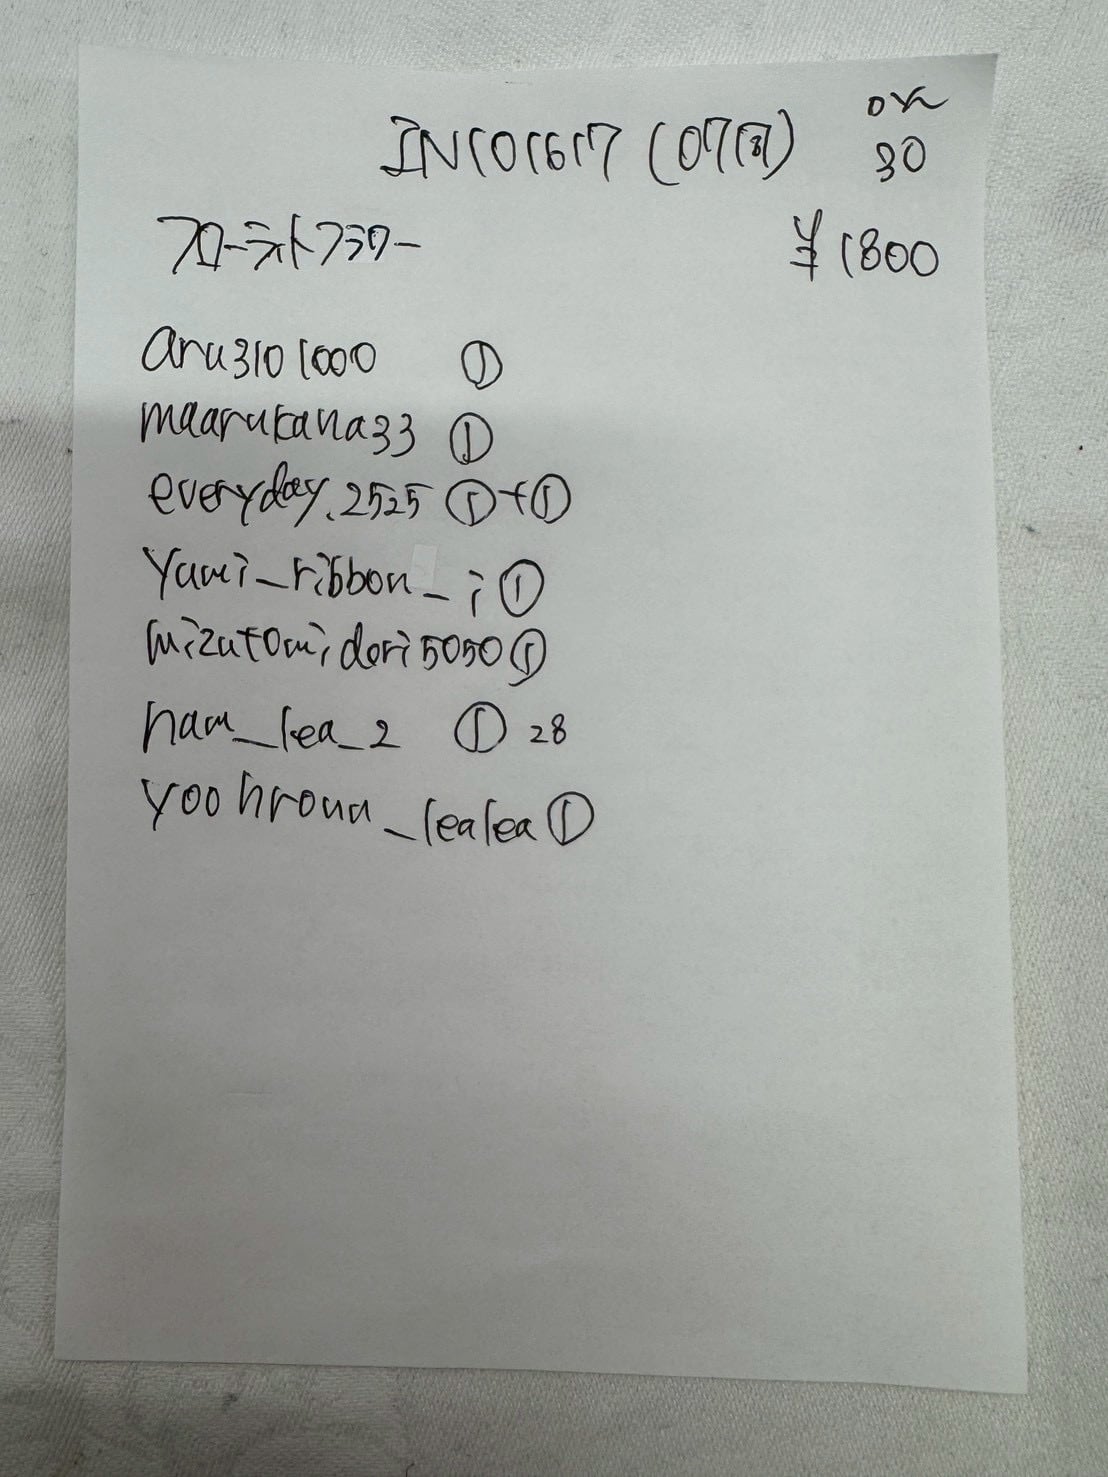 IN101617 (0717) ok
30
フローライトフラワー ¥1800
aru3101000 ①
maarukana33 ①
everyday.2525 ①+①
yumi_ribbon_i ①
mizutomidori5050 ①
nam_lea_2 ① 28
yoohroun_lealea ①